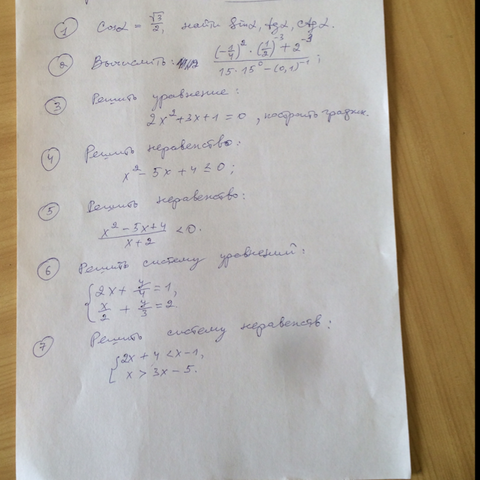 ① Cos2 = √3/2, найти Sin2, tg2, ctg2.
② Вычислить: ((-1/4)² · (1/2)⁻³ + 2⁻³) / (15 · 15⁰ - (0,1)⁻¹);
③ Решить уравнение:
2x² + 3x + 1 = 0, построить график.
④ Решить неравенство:
x² - 5x + 4 ≤ 0;
⑤ Решить неравенство:
(x² - 5x + 4) / (x + 2) < 0.
⑥ Решить систему уравнений:
{ 2x + y/4 = 1,
x/2 + y/3 = 2
⑦ Решить систему неравенств:
{ 2x + 4 < x - 1,
x > 3x - 5.